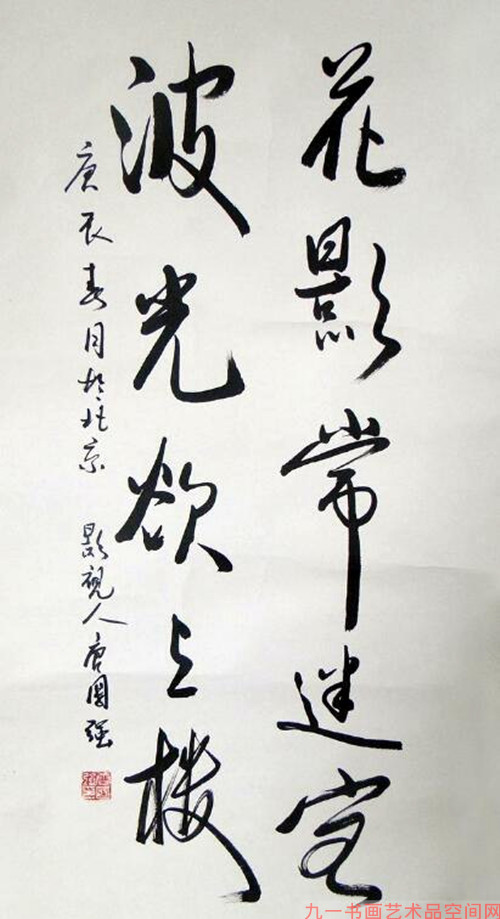 花影常迷
波光欲上楼
庚辰春月於北京 影視人唐國强
九一书画艺术品空间网